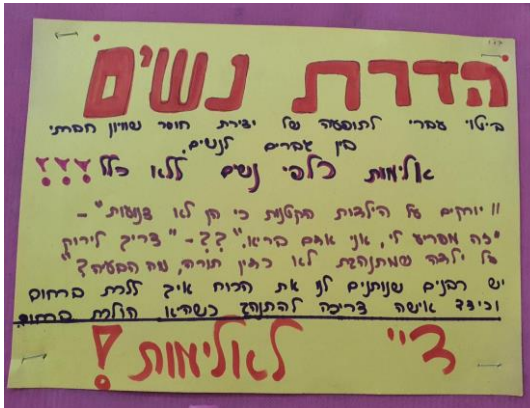 הדרת נשים
ביטוי עברי לתופעה של יצירת חוסר שוויון חברתי
בין גברים לנשים.
אלימות כלפי נשים ללא כלל!!!
"יורקים על הילדות הקטנות כי הן לא צנועות" -
"זה מפריע לי, אני אדם בריא." ?? - "צריך לירוק
על ילדה שמתנהגת לא כדין תורה, מה הבעיה?"
יש רבנים שנותנים לנו את הכוח איך ללכת ברחוב
וכיצד אישה צריכה להתנהג כשהיא הולכת ברחוב.
די לאלימות!